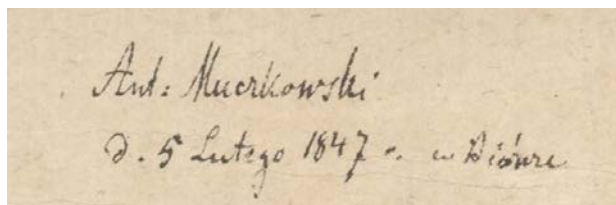 Ant: Muczkowski
d. 5 Lutego 1847 r. w Biórze